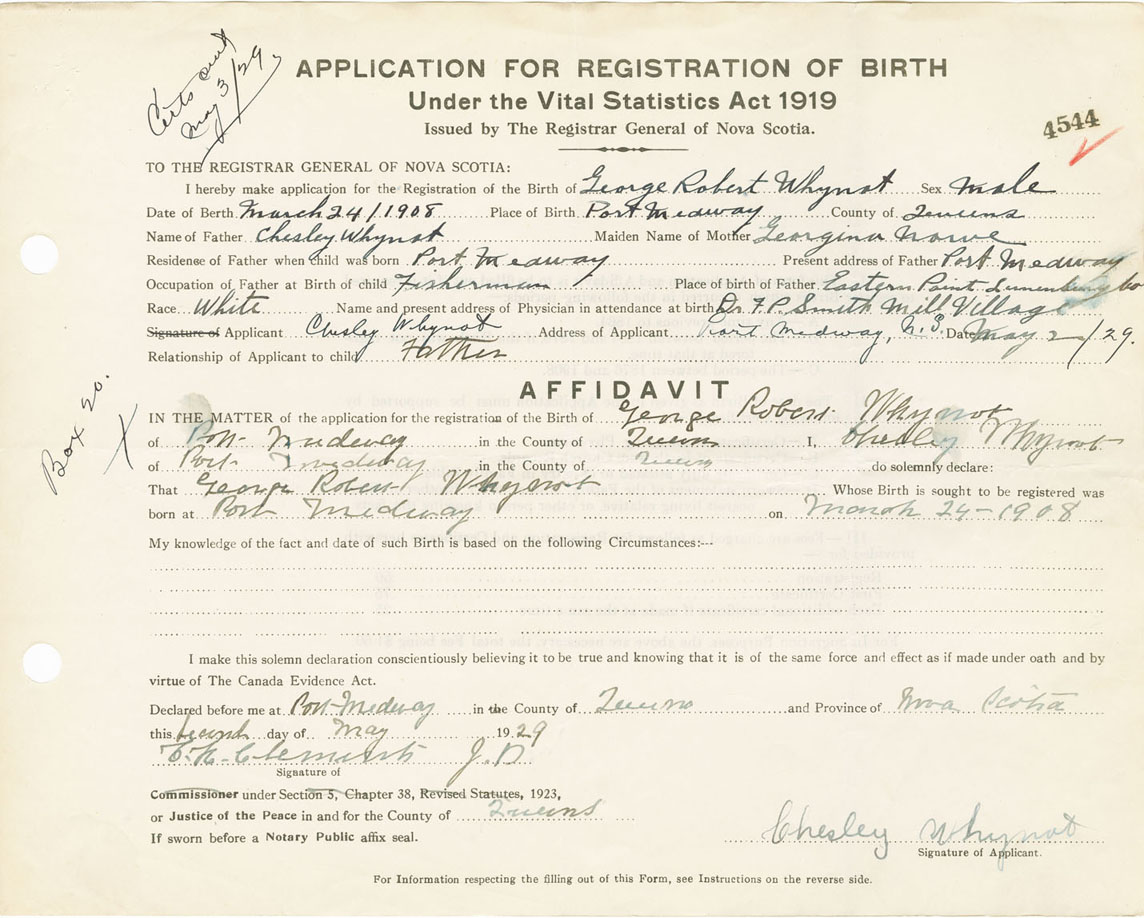 Certs sent
May 3/29
APPLICATION FOR REGISTRATION OF BIRTH
Under the Vital Statistics Act 1919
Issued by The Registrar General of Nova Scotia.
4544
TO THE REGISTRAR GENERAL OF NOVA SCOTIA:
I hereby make application for the Registration of the Birth of George Robert Whynot Sex male
Date of Berth March 24/1908 Place of Birth Port Medway County of Queens
Name of Father Chesley Whynot Maiden Name of Mother Georgina Nowe
Residense of Father when child was born Port Medway Present address of Father Port Medway
Occupation of Father at Birth of child Fisherman Place of birth of Father Eastern Point Lunenburg Co
Race White Name and present address of Physician in attendance at birth Dr. F.P. Smith Mill Village
Signature of Applicant Chesley Whynot Address of Applicant Port Medway, N.S. Date May 2/29.
Relationship of Applicant to child Father
Box 20.
X
AFFIDAVIT
IN THE MATTER of the application for the registration of the Birth of George Robert Whynot
of Port Medway in the County of Queens I, Chesley Whynot
of Port Medway in the County of Queens do solemnly declare:
That George Robert Whynot Whose Birth is sought to be registered was
born at Port Medway on March 24-1908
My knowledge of the fact and date of such Birth is based on the following Circumstances:---
I make this solemn declaration conscientiously believing it to be true and knowing that it is of the same force and effect as if made under oath and by
virtue of The Canada Evidence Act.
Declared before me at Port Medway in the County of Queens and Province of Nova Scotia
this second day of May 1929
Clements J.P.
Signature of
Commissioner under Section 5, Chapter 38, Revised Statutes, 1923,
or Justice of the Peace in and for the County of Queens
If sworn before a Notary Public affix seal.
Chesley Whynot
Signature of Applicant.
For Information respecting the filling out of this Form, see Instructions on the reverse side.